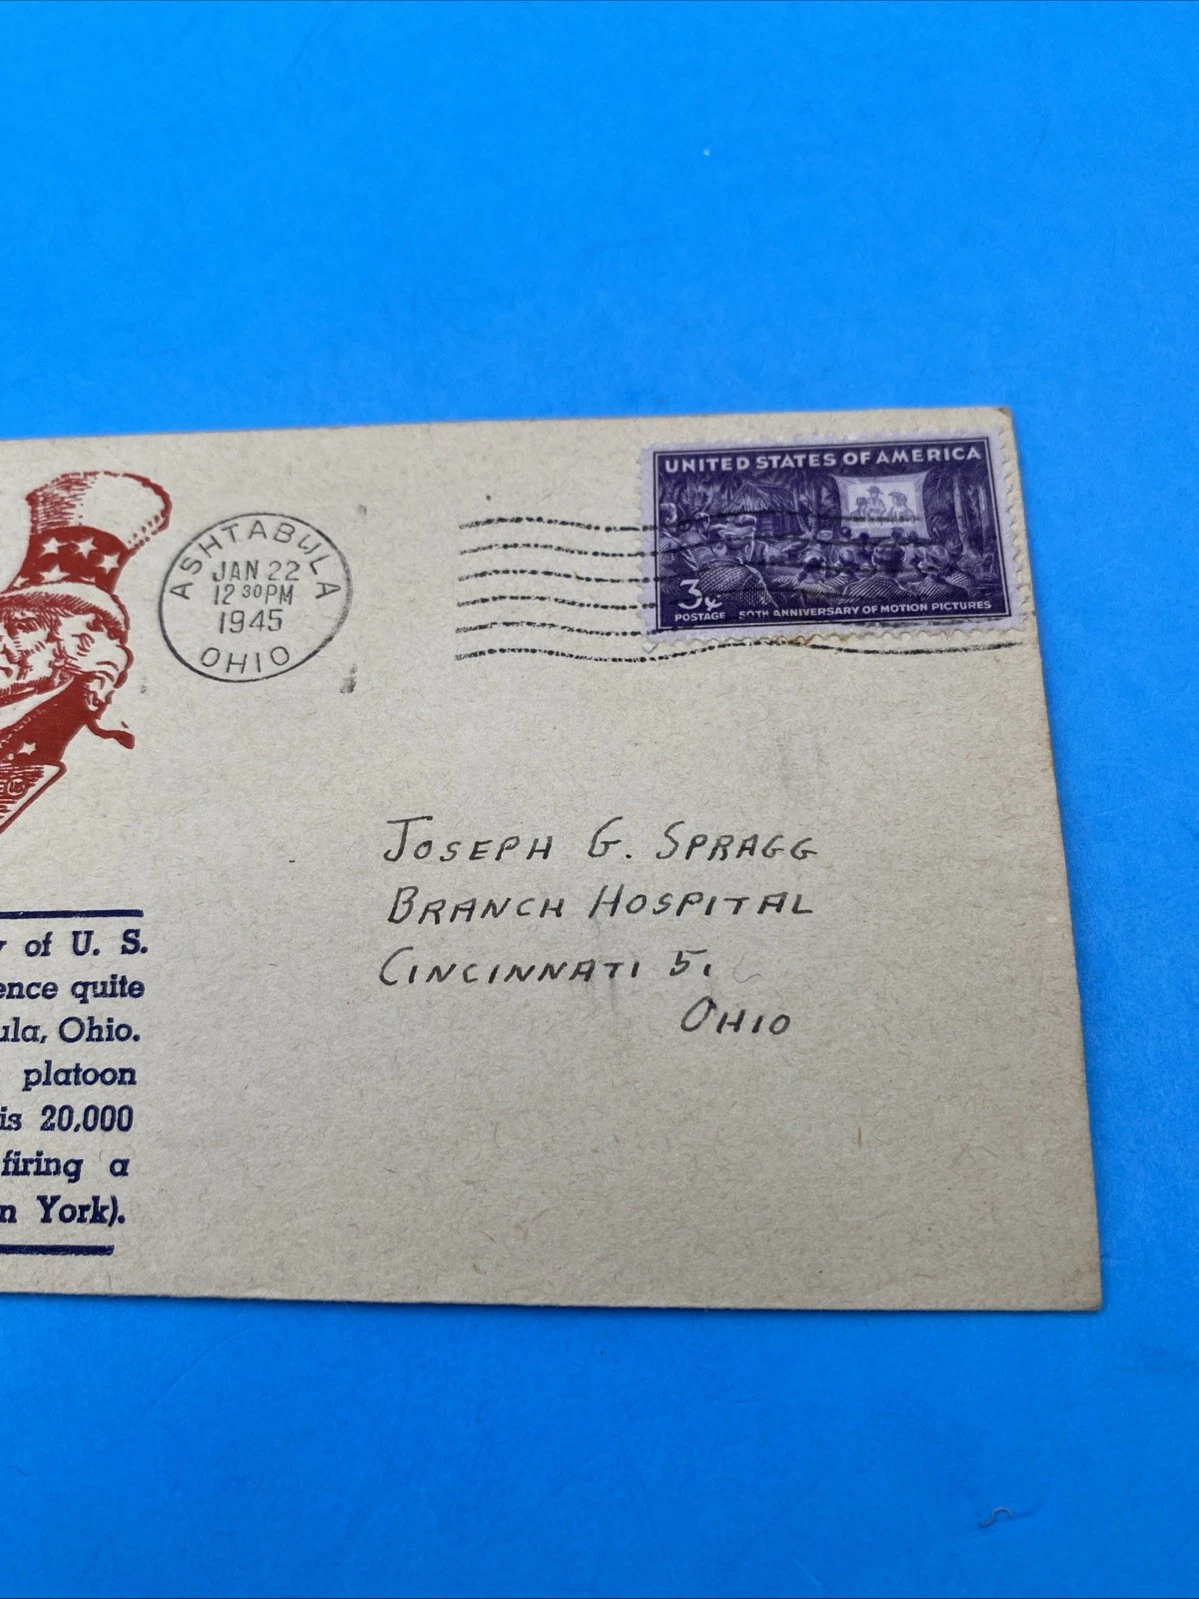 UNITED STATES OF AMERICA
3¢
POSTAGE
50TH ANNIVERSARY OF MOTION PICTURES
ASHTABULA
JAN 22
12 30 PM
1945
OHIO
JOSEPH G. SPRAGG
BRANCH HOSPITAL
CINCINNATI 5,
OHIO
of U. S.
quite
Ohio.
platoon
is 20,000
firing a
York).